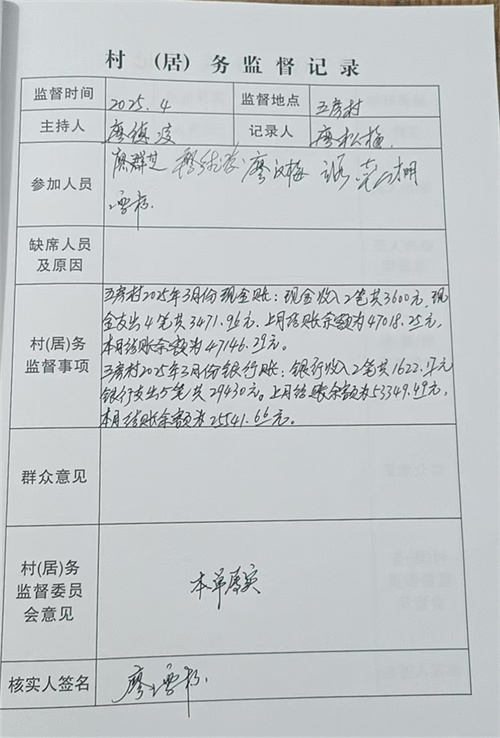 村 (居) 务监督记录
监督时间 2025.4 监督地点 五房村
主持人 廖 记录人 廖
参加人员 廖群芝 廖汉梅
缺席人员
及原因
五房村2025年3月份现金账：现金收入2笔共3600元，现
金支出4笔共3471.96元，上月结账余额为47018.25元，
村(居)务 本月结账余额为47146.29元。
监督事项 五房村2025年3月份银行账：银行收入2笔共1622.17元
银行支出5笔共29430元。上月结账余额为53349.49元，
本月结账余额为25541.66元。
群众意见
村(居)务
监督委员
会意见
本单属实
核实人签名 廖